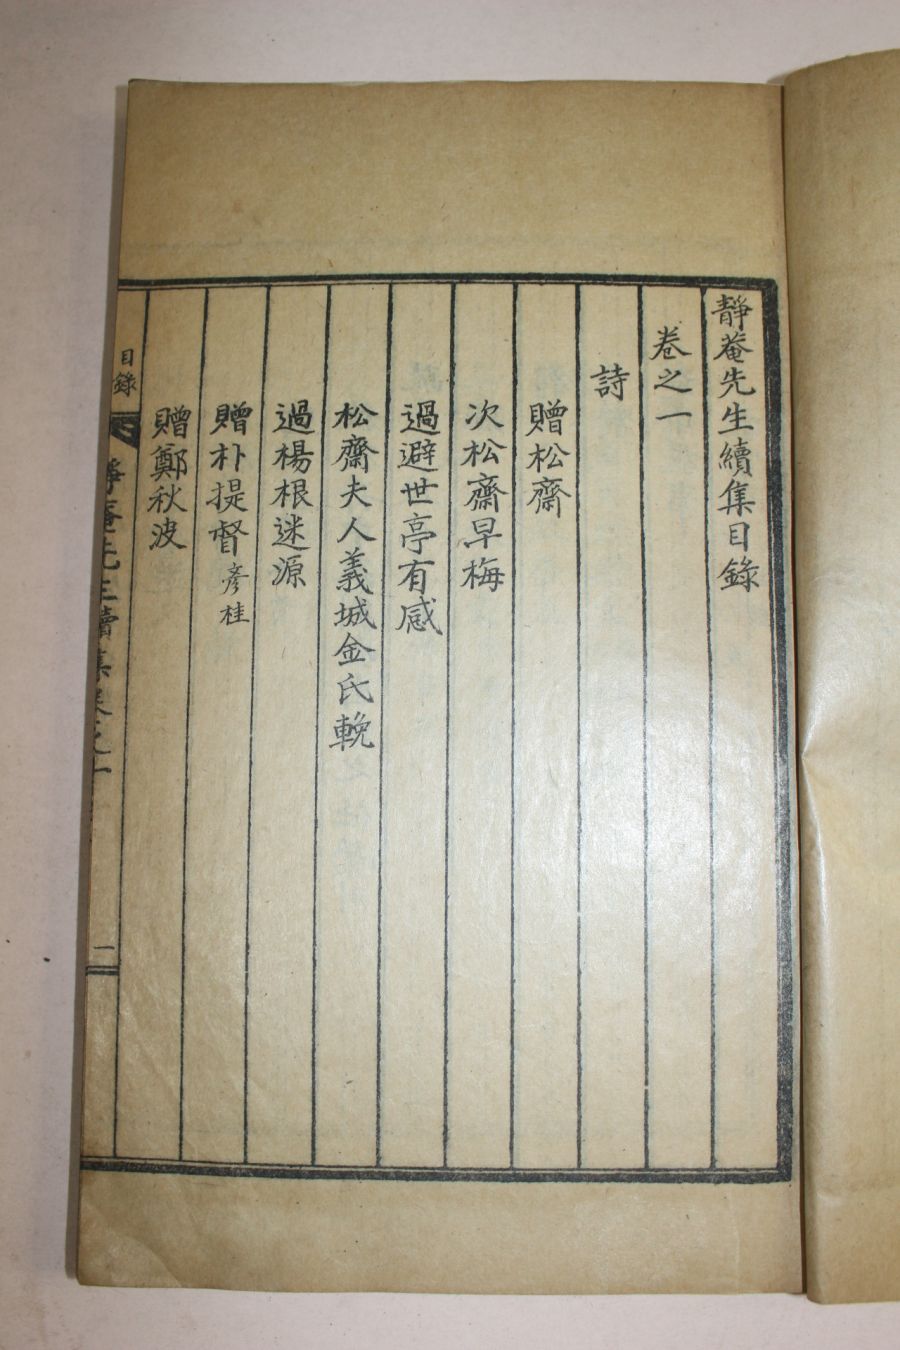 靜菴先生續集目錄
卷之一
詩
贈松齋
次松齋早梅
過避世亭有感
松齋夫人義城金氏輓
過楊根迷源
贈朴提督彦桂
贈鄭秋波
目錄
靜菴先生續集卷之一
一